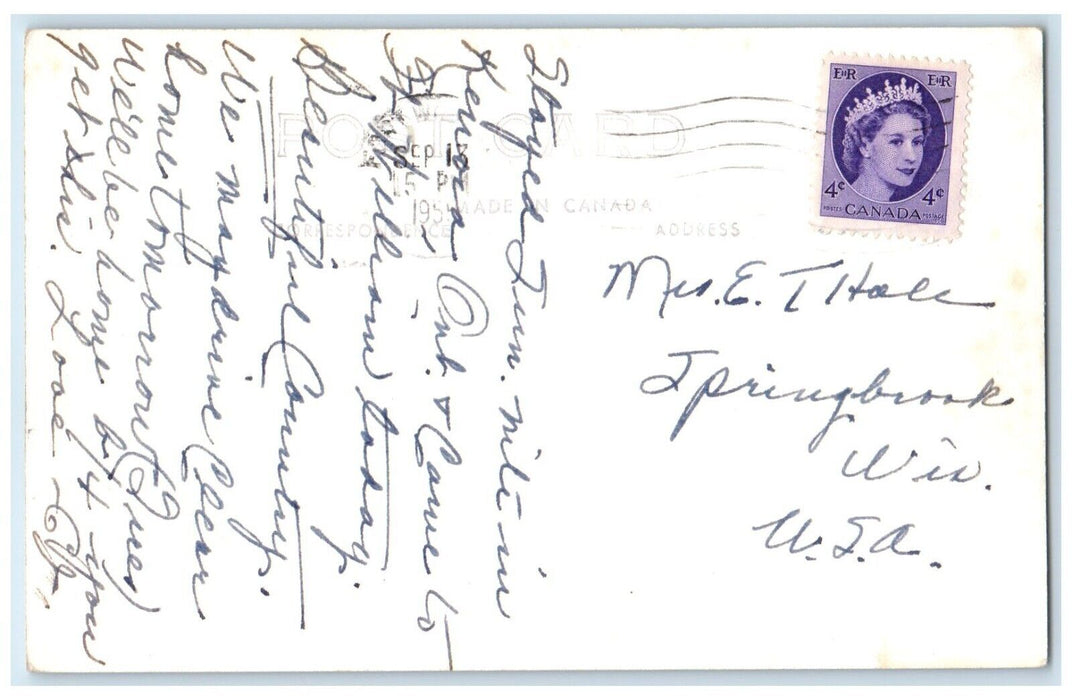 Stayed Sun. nite in
Kenora Ont. & Came to
Ft. William today.
Beautiful Country.
We may drive Clear
home tomorrow (Tues)
Will be home by 4 if you
get this. Love
POST CARD
SEP 13
5 PM
195
MADE IN CANADA
CORRESPONDENCE
ADDRESS
E II R E II R
4¢ 4¢
POSTES CANADA POSTAGE
Mrs. E. T Hall
Springbrook
Wis.
U.S.A.